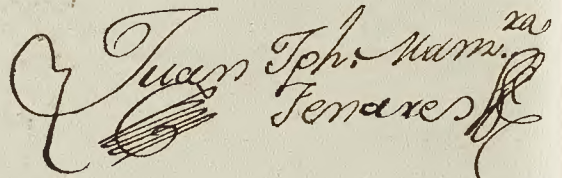 Juan Jph. Manr.ra
Tenares